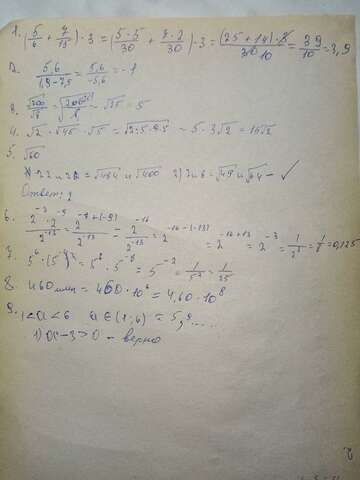 1. (5/6 + 7/15) · 3 = (5·5/30 + 7·2/30) · 3 = (25+14)·3/30 10 = 39/10 = 3,9
2. 5,6/(1,9-7,5) = 5,6/-5,6 = -1
3. √200/√8 = √(200/8) ~ √25 = 5
4. √2 · √45 · √5 = √(2·5·9·5) ~ 5·3√2 = 15√2
5. √60
22 и = √484 и √400 2) 7 и 8 = √49 и √64 - ✓
Ответ: 2
6. 2^-8 · 2^-8 / 2^-13 = 2^(-8+(-8)) / 2^-13 = 2^-16 / 2^-13 = 2^(-16-(-13)) = 2^(-16+13) = 2^-3 = 1/2^3 = 1/8 = 0,125
7. 5^6 · (5^-4)^2 = 5^6 · 5^-8 = 5^-2 = 1/5^2 = 1/25
8. 460 млн = 460 · 10^6 = 4,60 · 10^8
9. <a<6 a ∈ = 5,9....
1) a-3>0 - верно